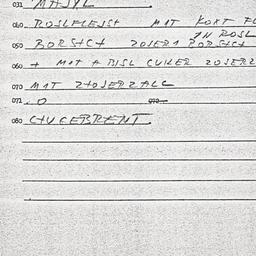 031 MAJYL.
040 ROSLFLEJSH MAT KOKT FL
IN ROSL
050 BORSHCH ZOJERI BORSHCH
060 + MAT A BISL CUKER ZOJERZ
070 MAT ZHOJERZALC
071 .0 072
080 CUGEBRENT.